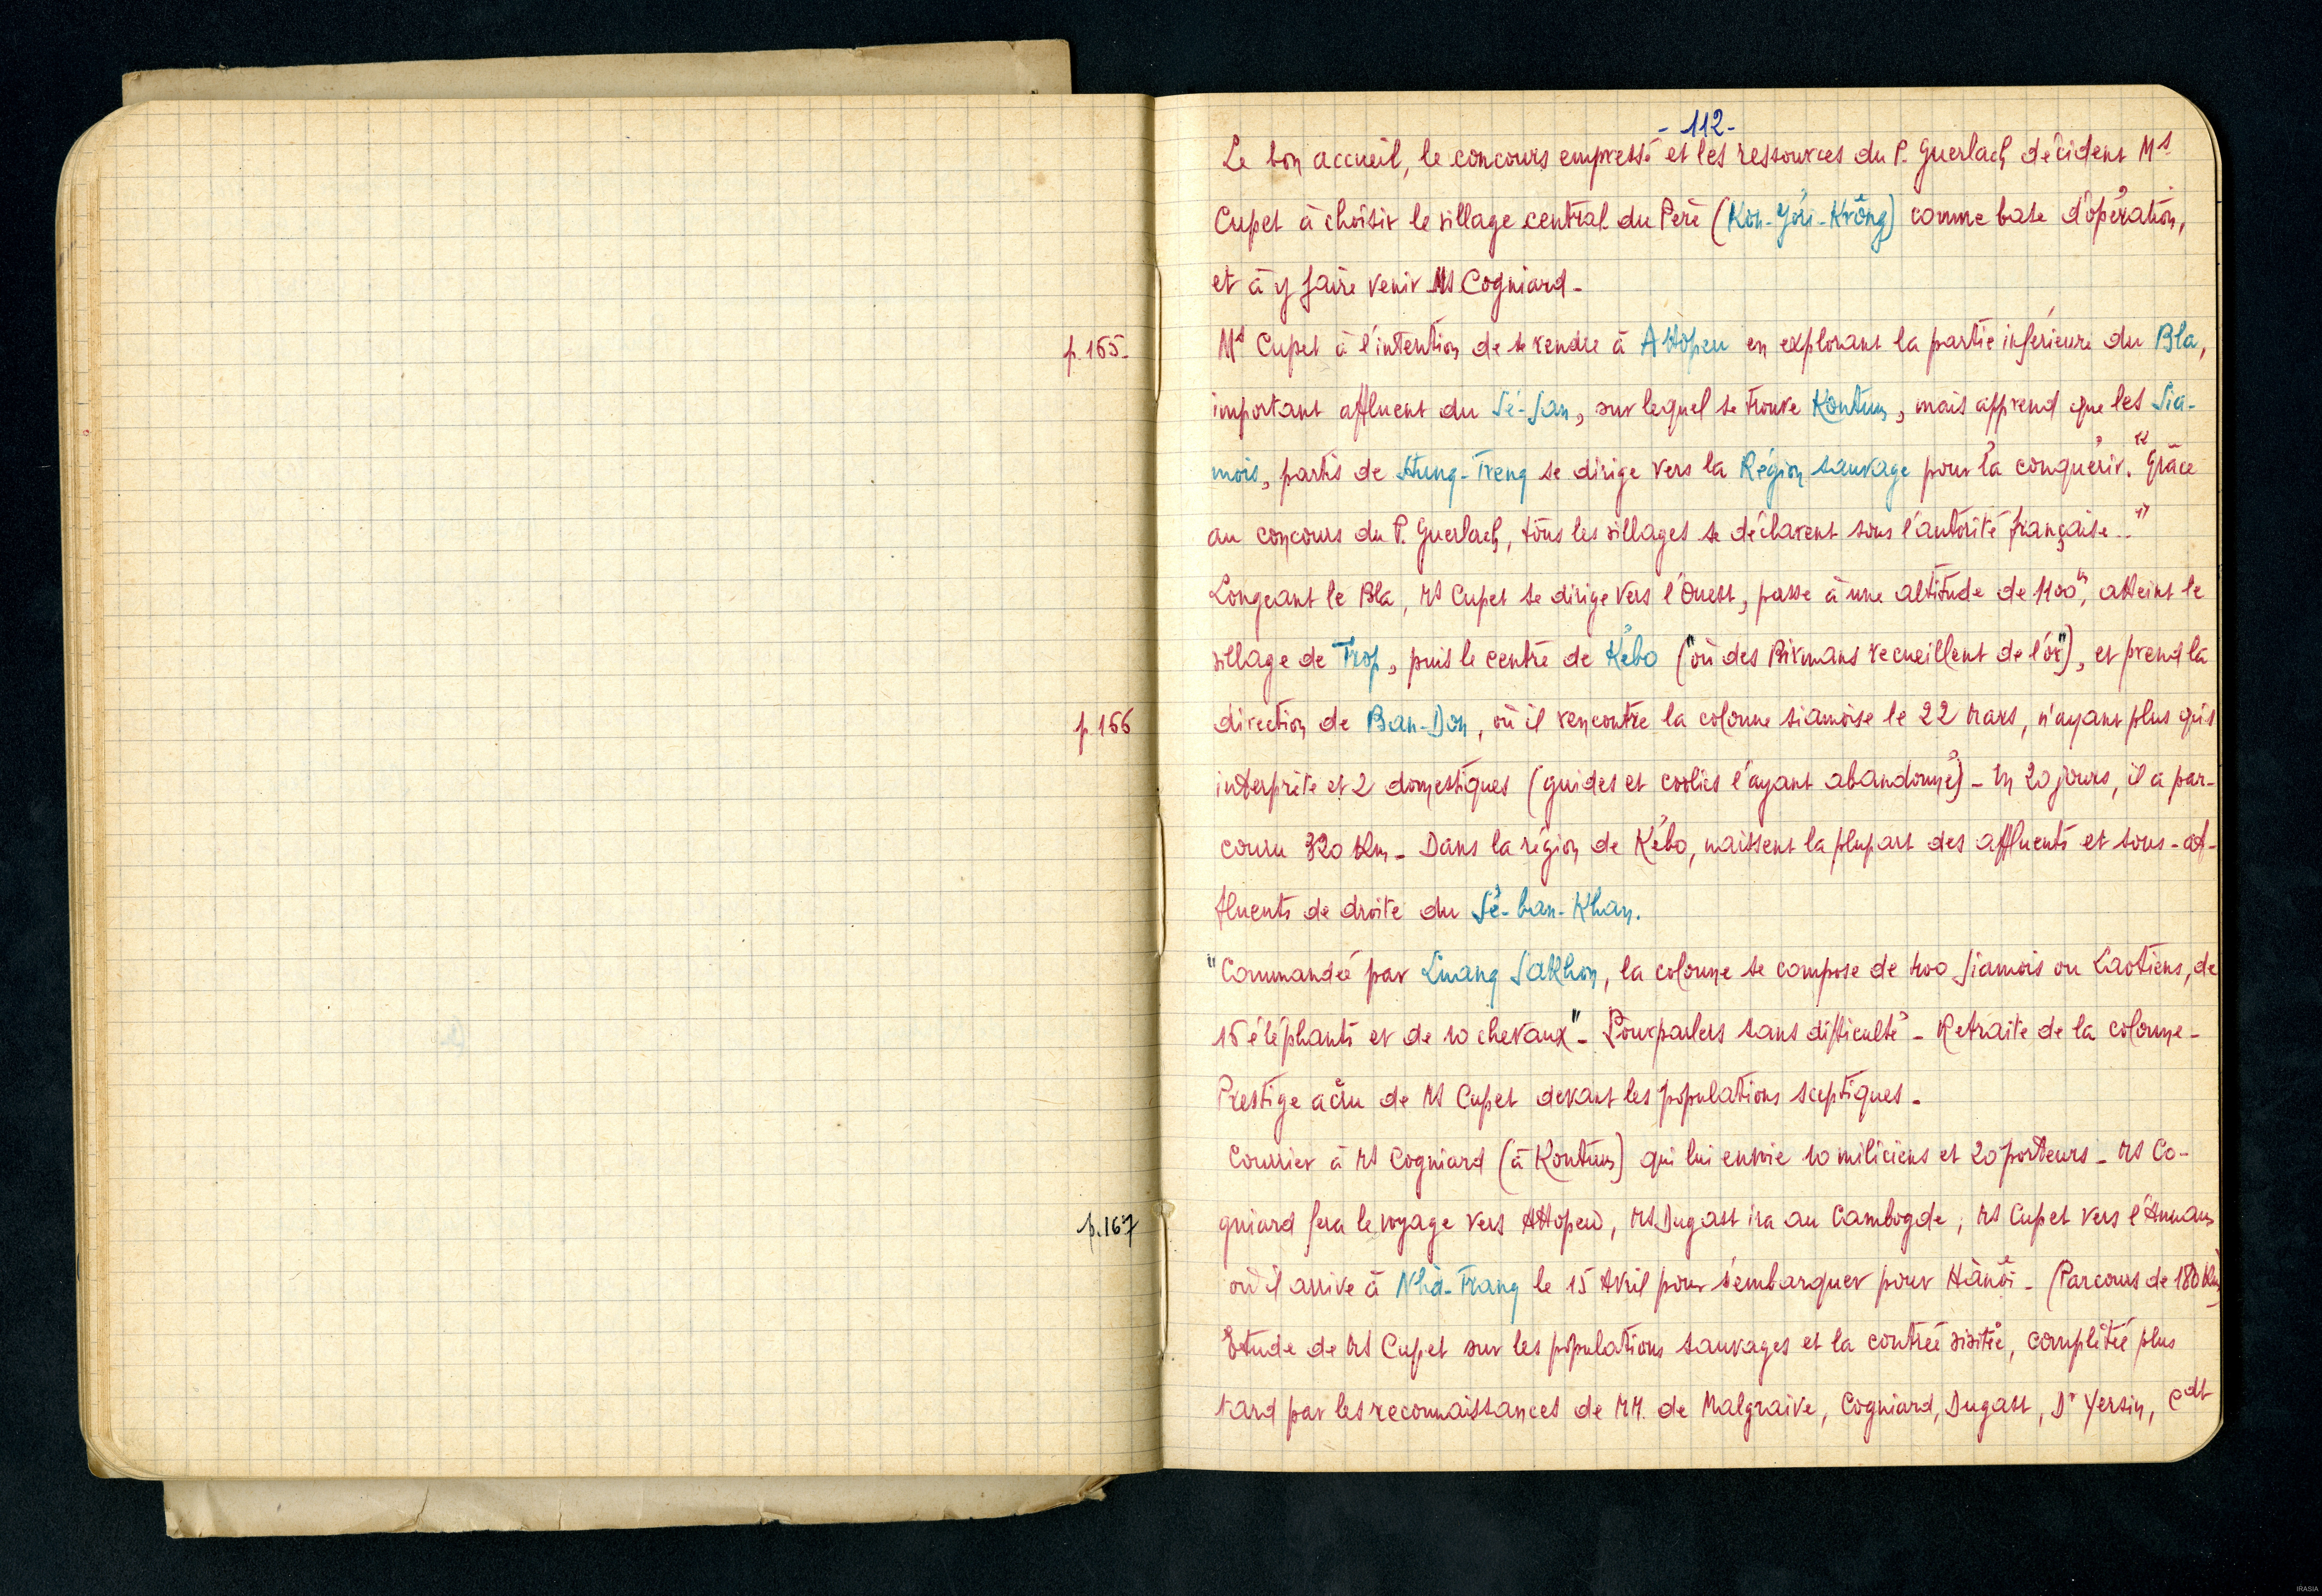 - 112 -
Le bon accueil, le concours empressé et les ressources du P. Guerlach décident Mr
Cupet à choisir le village central du Père (Kon-Jơri-Krông) comme base d'opération,
et à y faire venir Mr Cogniard -
p. 165.
Mr Cupet à l'intention de se rendre à Attopeu en explorant la partie inférieure du Bla,
important affluent du Sé-San, sur lequel se trouve Kontum, mais apprend que les Sia-
mois, partis de Stung-Treng se dirige vers la Région sauvage pour la conquérir. "Grâce
au concours du P. Guerlach, tous les villages se déclarent sous l'autorité française.."
Longeant le Bla, Mr Cupet se dirige vers l'Ouest, passe à une altitude de 1100m, atteint le
village de Trop, puis le centre de Kébo ("où des Birmans recueillent de l'or"), et prend la
p. 166
direction de Ban-Don, où il rencontre la colonne siamoise le 22 Mars, n'ayant plus qu'1
interprète et 2 domestiques (guides et coolies l'ayant abandonné) - En 20 jours, il a par-
couru 320 Km - Dans la région de Kébo, naissent la plupart des affluents et sous-af-
fluents de droite du Sé-ban-Khan.
"Commandée par Luang Sakhon, la colonne se compose de 400 Siamois ou Laotiens, de
15 éléphants et de 10 chevaux" - Pourparlers sans difficulté - Retraite de la colonne -
Prestige accru de Mr Cupet devant les populations sceptiques -
Courrier à Mr Cogniard (à Kontum) qui lui envoie 10 miliciens et 20 porteurs - Mr Co-
p. 167
gniard fera le voyage vers Attopeu, Mr Dugast ira au Cambogde, Mr Cupet vers l'Annam
où il arrive à Nha-Trang le 15 Avril pour s'embarquer pour Hànôi - (Parcours de 180 Km)
Etude de Mr Cupet sur les populations sauvages et la contrée visitée, complétée plus
tard par les reconnaissances de MM. de Malgraive, Cogniard, Dugast, Dr Yersin, Cdt
IRASIA